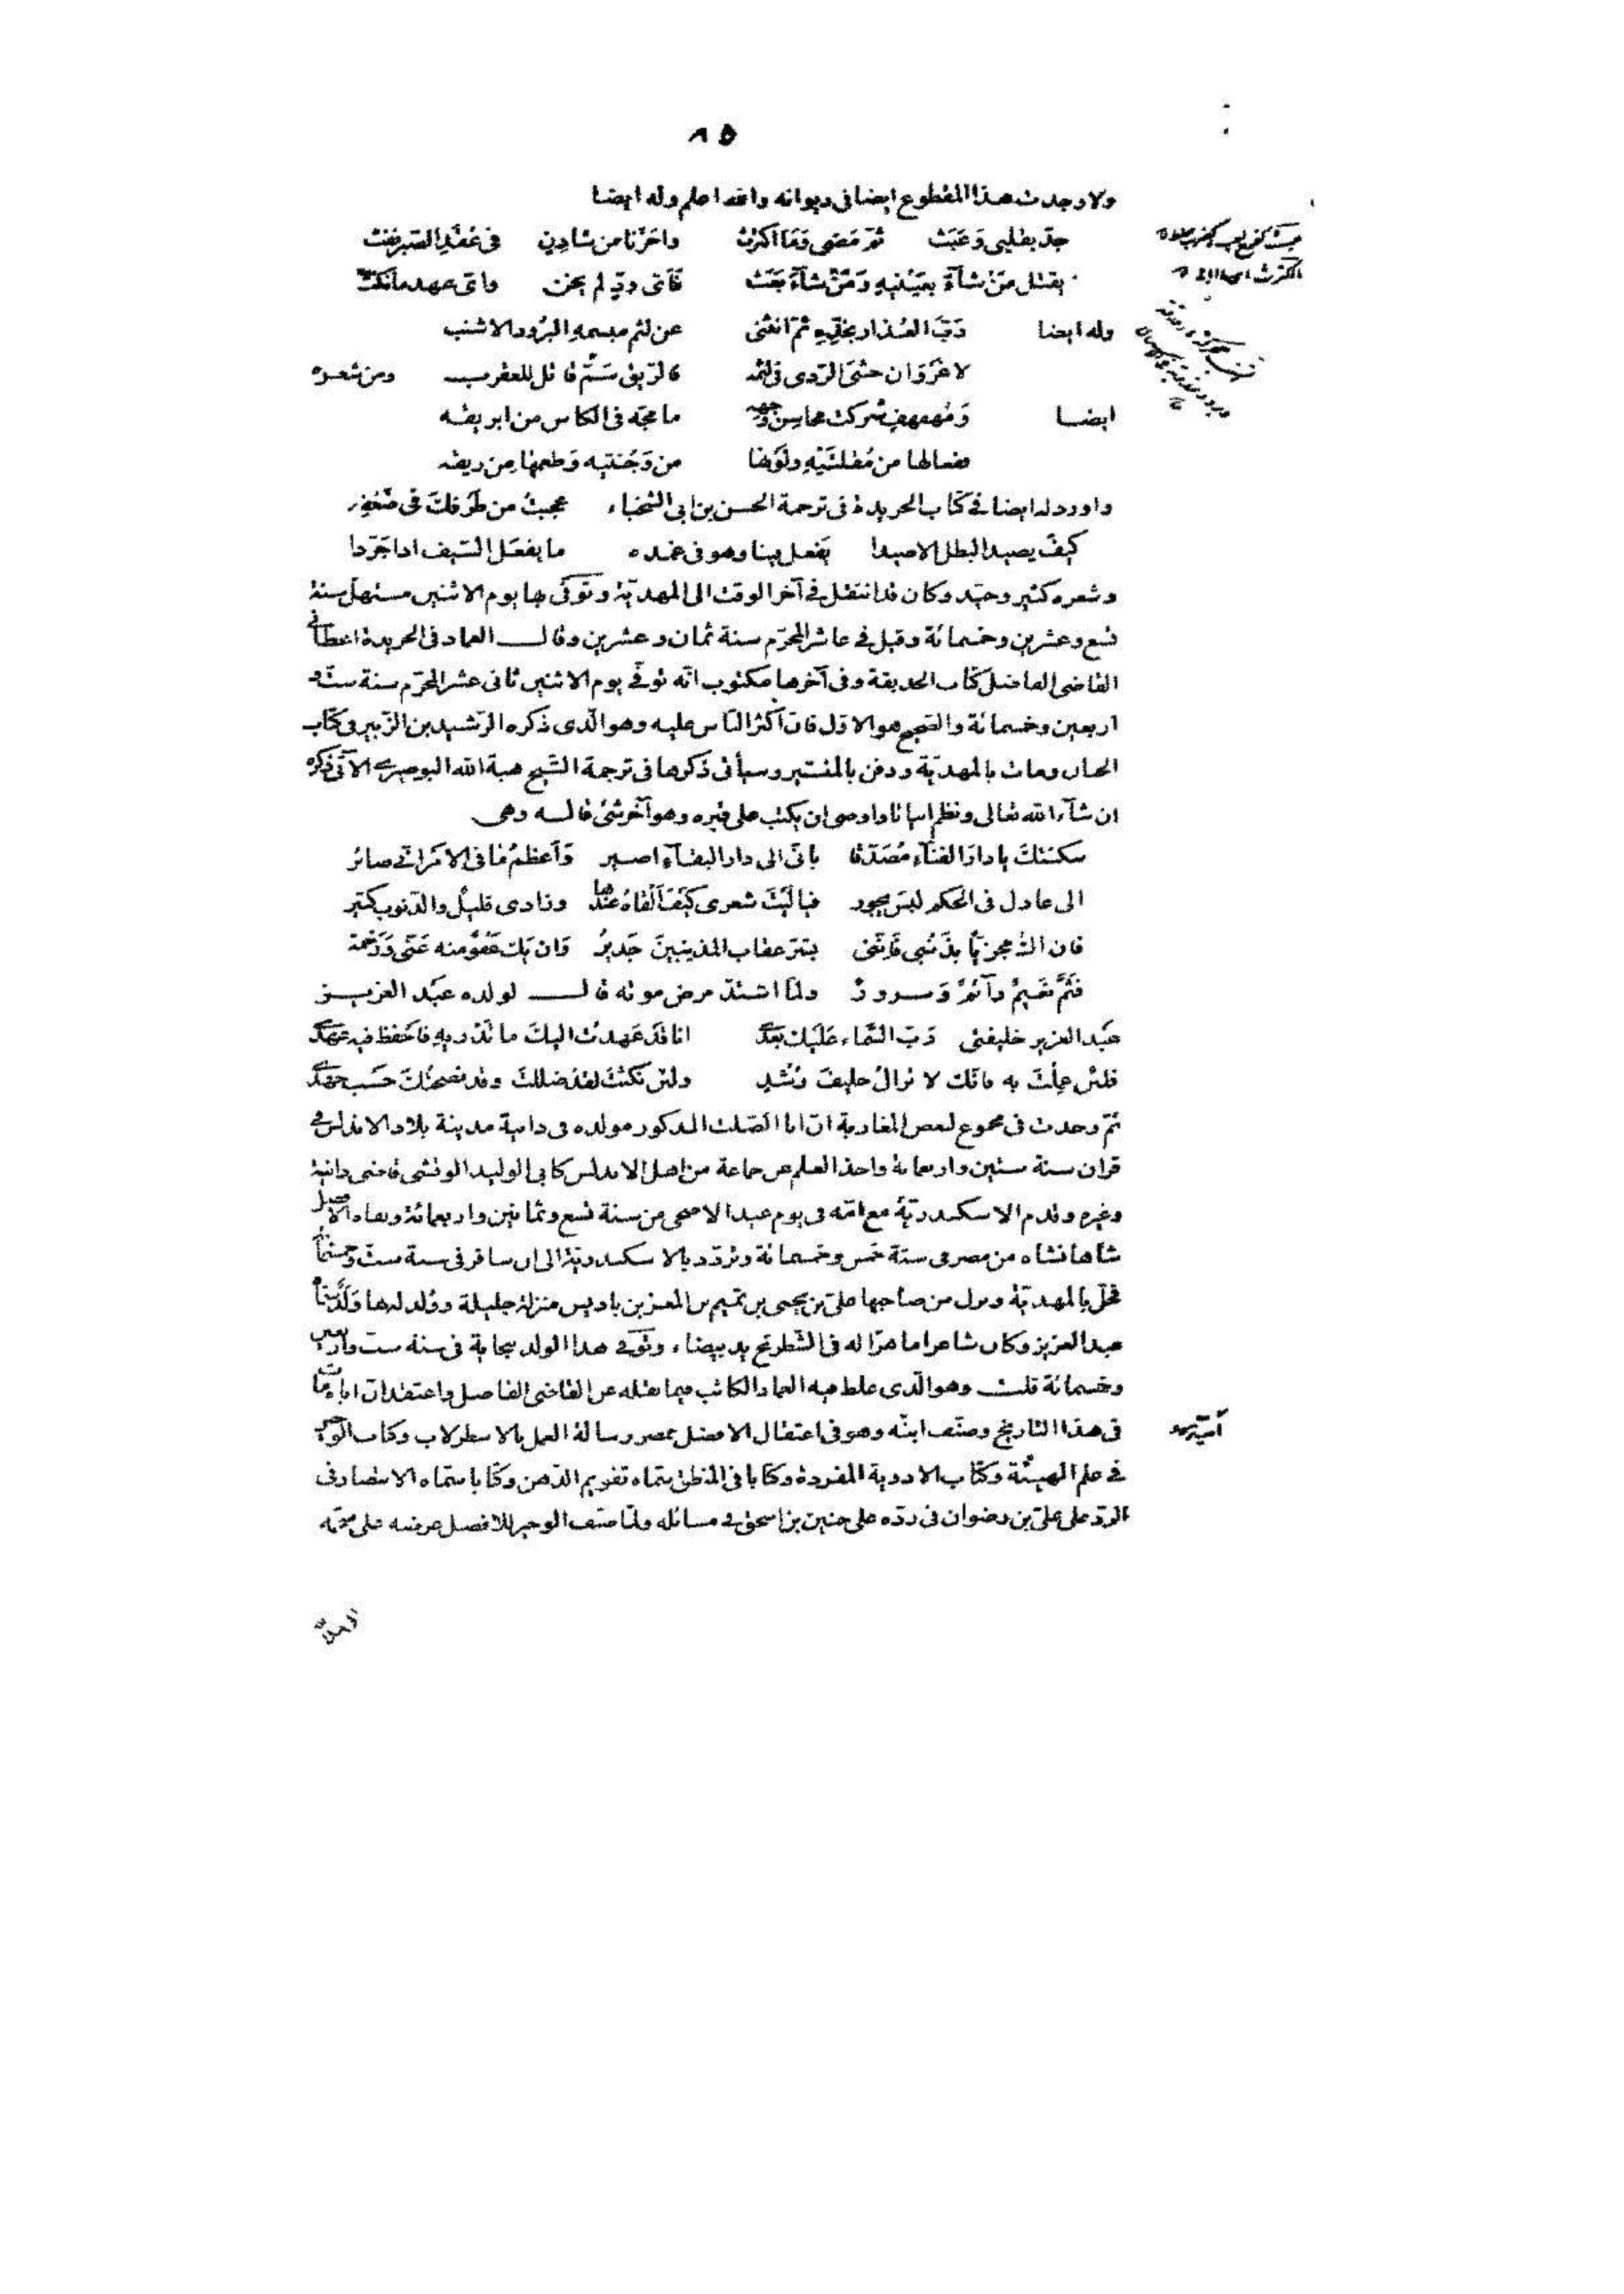 ٨٥
ولا وجدت هذا المقطوع ايضا فى ديوانه والله اعلم وله ايضا
جدّ بقلبى وَعَبَث ثمّ مَضى وَمَا اكترث واحَرَبا من شادِنٍ فى عُقَدِ الصّبر نفث
يقتل مَنْ شآءَ بعَيْنيهِ وَمَنْ شآءَ بَعَث فَاَىّ ودٍّ لم يخن واىّ عهد ما نكث
وله ايضا دَبّ العُذار بخدِّهِ ثمّ انثنى عن لثم مبسمهِ البَرُود الاشنب
لا غَرْوَ ان خشىَ الرّدى فى لثمه فالرّيق سَمّ قاتل للعقرب ومن شعره
ايضا وَمُهفهفٍ شركت محاسن وجهه ما مجّه فى الكاس من ابريقه
ففعالها من مُقلتَيْهِ ولَونها من وَجْنتيه وَطعمها من ريقه
واورد له ايضا فى كتاب الخريدة فى ترجمة الحسن بن ابى الشخباء عجبتُ من طَرْفكَ فى ضَعْفِه
كيفَ يصيد البطل الاصيدا يَفعل فينا وهو فى غمده ما يفعَل السّيف اذا جَرّدا
وشعره كثير وجيّد وكان قد انتقل فى آخر الوقت الى المهديّة وتوفّى بها يوم الاثنين مستهلّ سنة
تسع وعشرين وخمسمائة وقيل فى عاشر المحرّم سنة ثمان وعشرين وقال العماد فى الخريدة اعطانى
القاضى الفاضل كتاب الحديقة وفى آخرها مكتوب انّه توفّى يوم الاثنين ثانى عشر المحرّم سنة ستّ و
اربعين وخمسمائة والصّحيح هو الاوّل فانّ اكثر النّاس عليه وهو الّذى ذكره الرّشيد بن الزّبير فى كتاب
الجنان ومات بالمهديّة ودفن بالمنستير وسيأتى ذكرها فى ترجمة الشّيخ هبة الله البوصيرى الآتى ذكره
ان شآء الله تعالى ونظم ابياتا واوصى ان يكتب على قبره وهو آخر شئ قاله وهى
سكنتكَ يا دارَ الفنآء مُصَدّقا بانّى الى دار البقآء اصير وَاَعظمُ ما فى الامر انّى صائر
الى عادل فى الحكم ليسَ يجور فيا لَيْتَ شعرى كَيْفَ اَلقاهُ عندها وزادى قليلٌ والذّنوب كثير
فان اَكُ مجزيّا بذَنبى فاِنّنى بشَرّ عقاب المذنبينَ جَديرُ وَان يَك عَفوٌ منه عَنّى وَرَحمة
فَثَمَّ نَعيمٌ دآئمٌ وَسرورُ ولمّا اشتدّ مرض موته قال لولده عبد العزيز
عبد العزيز خليفتى رَبّ السّماء عَلَيك بَعدى انا قد عَهدتُ اليكَ ما تَدْريهِ فاحْفظ فيه عهدى
فلئن عملتَ به فانّك لا تزالُ حليفَ رُشد ولئن نَكثتَ لقد ضللتَ وقد نصحتُكَ حسَب جهدى
ثمّ وجدت فى مجموع لبعض المغاربة انّ ابا الصّلت المذكور مولده فى دانية مدينة بلاد الاندلس فى
قران سنة ستين واربعمائة واخذ العلم عن جماعة من اهل الاندلس كابى الوليد الوقّشى قاضى دانية
وغيره وقدم الاسكندريّة مع امّه فى يوم عيد الاضحى من سنة تسع وثمانين واربعمائة ونفاه الافضل
شاهانشاه من مصر فى سنة خمس وخمسمائة وتردّد بالاسكندريّة الى ان سافر فى سنة ستّ وخمسمائة
فحلّ بالمهديّة ونزل من صاحبها علىّ بن يحيى بن تميم بن المعز بن باديس منزلة جليلة وولد له بها ولد سمّاه
عبد العزيز وكان شاعرا ماهرا له فى الشّطرنج يد بيضاء وتوفّى هذا الولد ببجاية فى سنة ست واربعين
وخمسمائة قلت وهو الّذى غلط فيه العماد الكاتب فيما نقله عن القاضى الفاضل واعتقد انّ اباه مات
فى هذا التاريخ وصنّف اميّة وهو فى اعتقال الافضل بمصر رسالة العمل بالاسطرلاب وكتاب الوجيز
فى علم الهيئة وكتاب الادوية المفردة وكتابا فى المنطق سمّاه تقويم الذّهن وكتابا سمّاه الانتصار فى
الرّدّ على علىّ بن رضوان فى ردّه على حنين بن اسحق فى مسائله ولمّا صنّف الوجيز للافضل عرضه على منجّمه